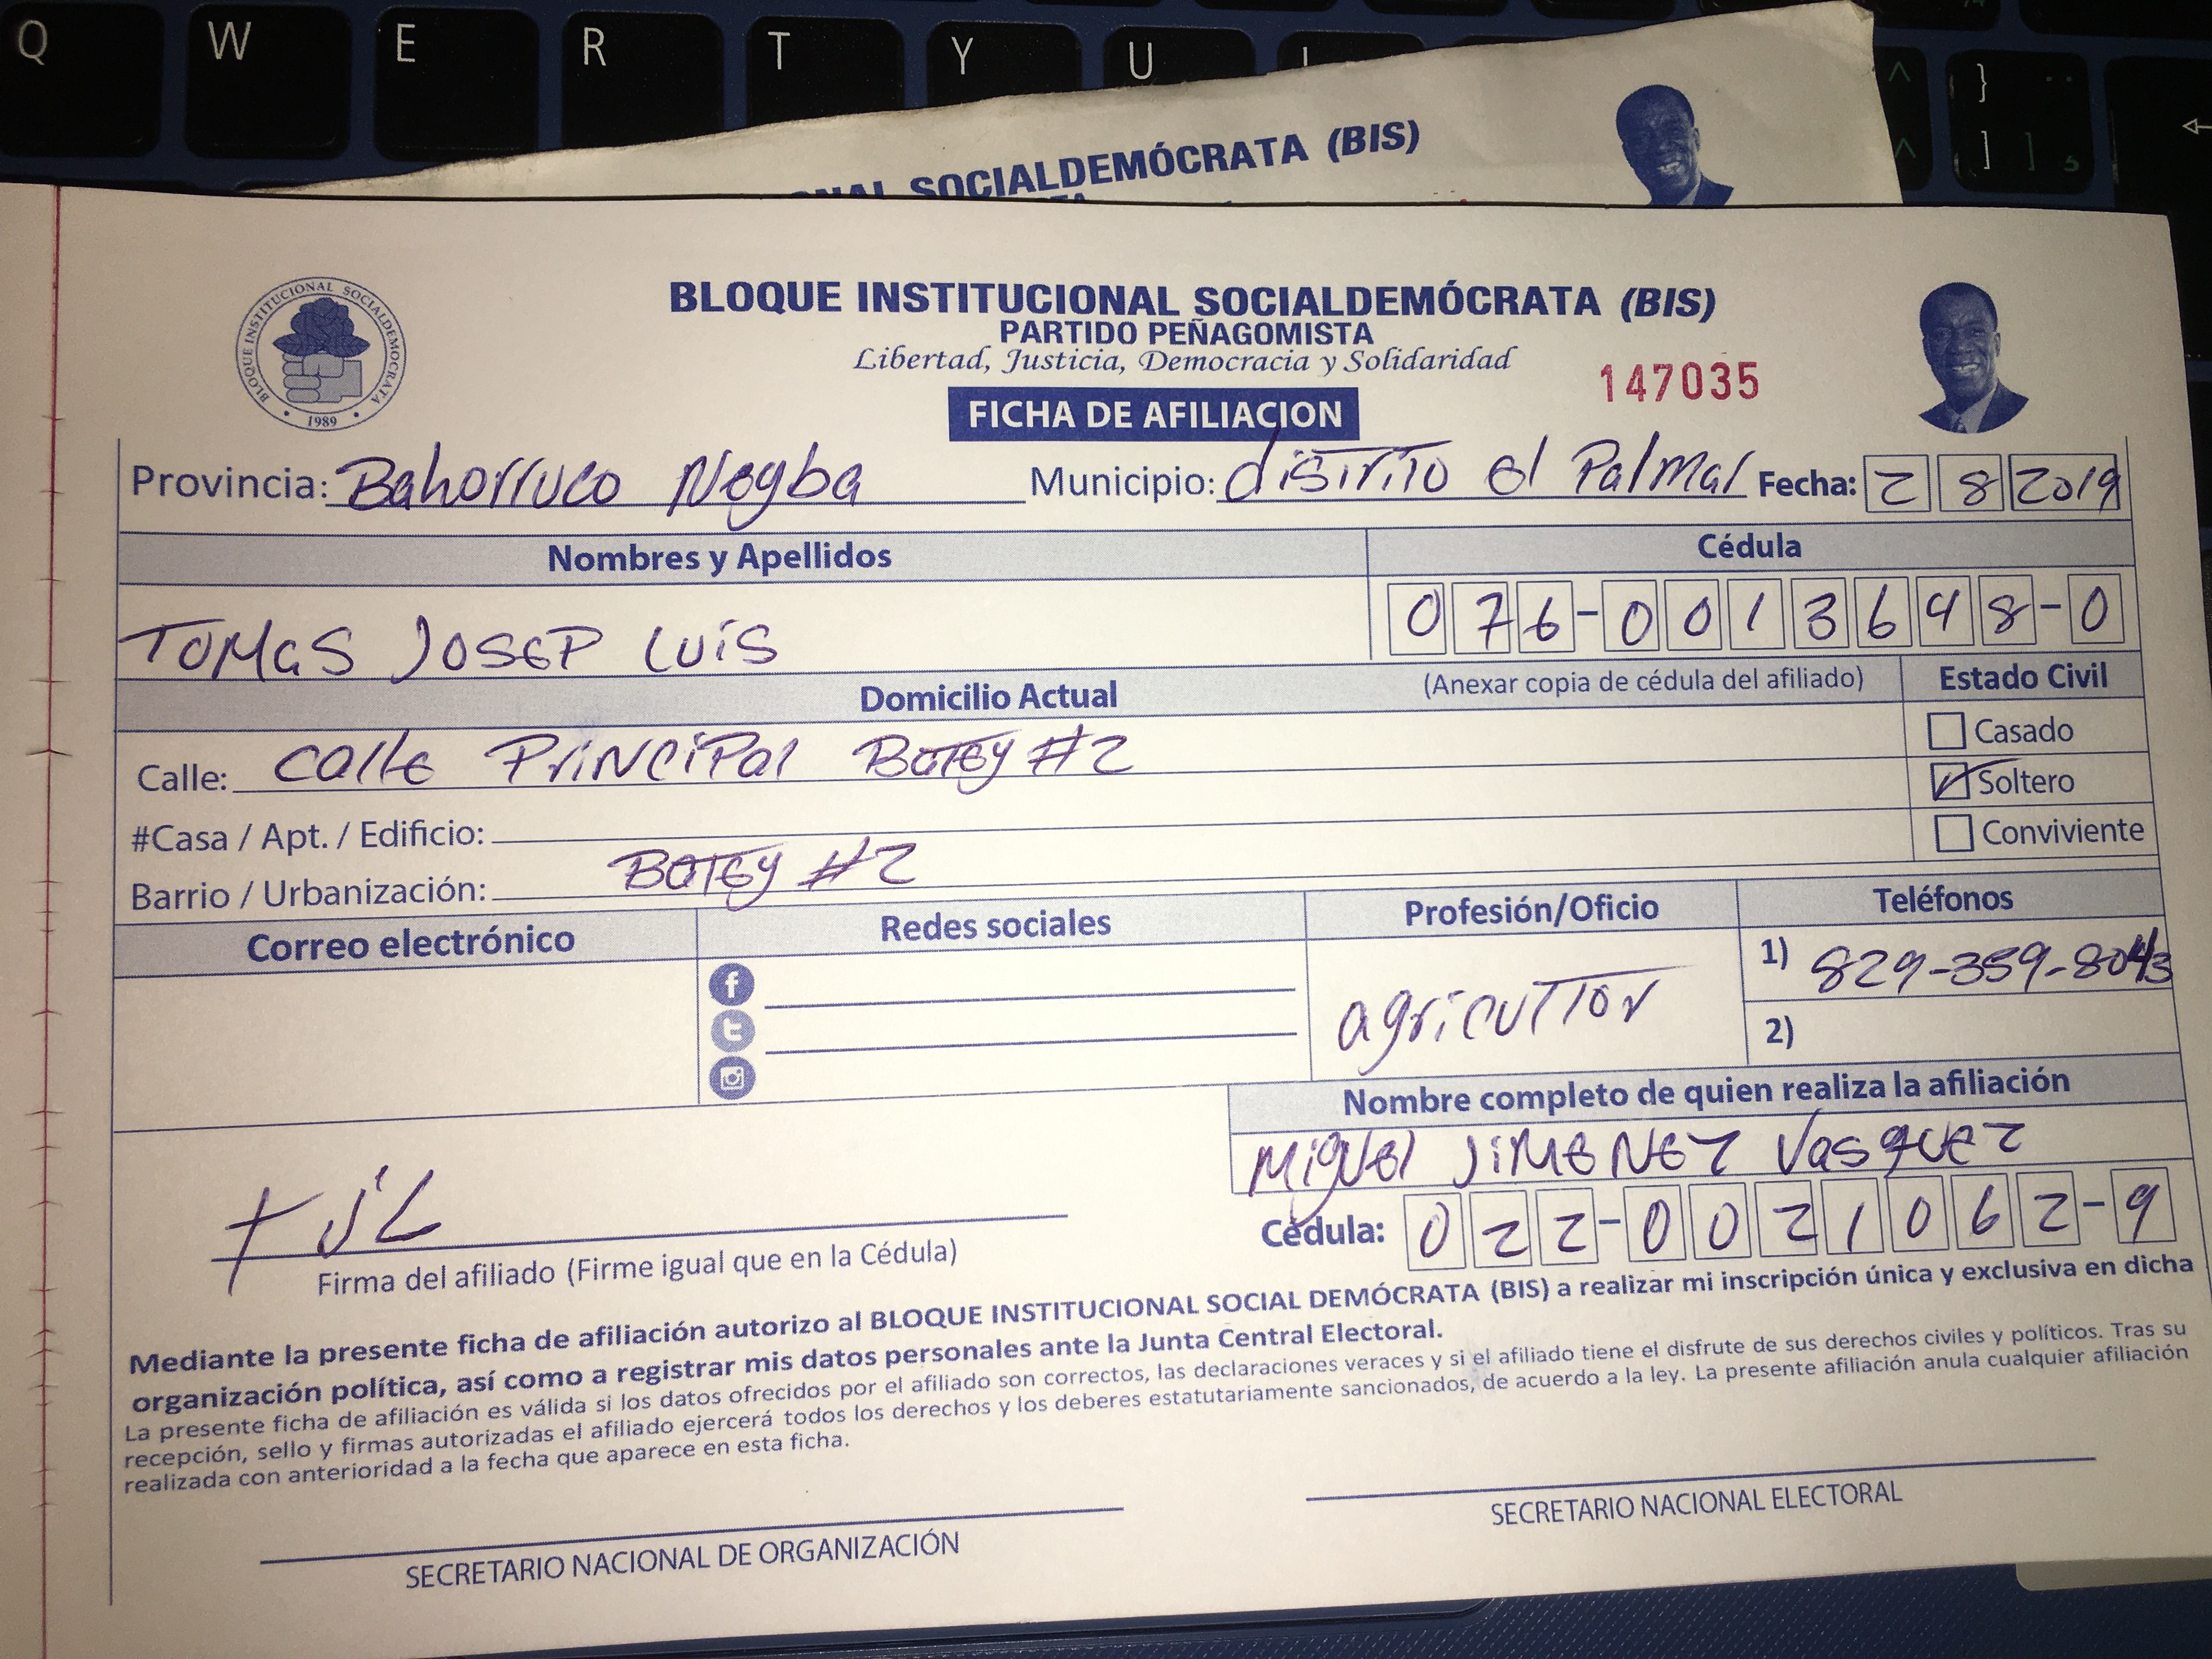 Q W E R T Y U I } ] ] ^ ^ ←
NAL SOCIALDEMÓCRATA (BIS)
BLOQUE INSTITUCIONAL SOCIALDEMÓCRATA
1989
BLOQUE INSTITUCIONAL SOCIALDEMÓCRATA (BIS)
PARTIDO PEÑAGOMISTA
Libertad, Justicia, Democracia y Solidaridad
147035
FICHA DE AFILIACION
Provincia: Bahorruco Neyba Municipio: distrito el Palmar Fecha: 2 8 2019
Nombres y Apellidos Cédula
TOMas JOSEP LUiS 076-0013648-0
Domicilio Actual (Anexar copia de cédula del afiliado) Estado Civil
Calle: calle PriNciPal Batey #2 Casado
#Casa / Apt. / Edificio: Soltero
Barrio / Urbanización: Batey #2 Conviviente
Correo electrónico Redes sociales Profesión/Oficio Teléfonos
agricuttor 1) 829-359-8043
2)
Nombre completo de quien realiza la afiliación
Miguel JiMeNez Vasquez
Cédula: 022-0021062-9
t JL
Firma del afiliado (Firme igual que en la Cédula)
Mediante la presente ficha de afiliación autorizo al BLOQUE INSTITUCIONAL SOCIAL DEMÓCRATA (BIS) a realizar mi inscripción única y exclusiva en dicha
organización política, así como a registrar mis datos personales ante la Junta Central Electoral.
La presente ficha de afiliación es válida si los datos ofrecidos por el afiliado son correctos, las declaraciones veraces y si el afiliado tiene el disfrute de sus derechos civiles y políticos. Tras su
recepción, sello y firmas autorizadas el afiliado ejercerá todos los derechos y los deberes estatutariamente sancionados, de acuerdo a la ley. La presente afiliación anula cualquier afiliación
realizada con anterioridad a la fecha que aparece en esta ficha.
SECRETARIO NACIONAL DE ORGANIZACIÓN SECRETARIO NACIONAL ELECTORAL